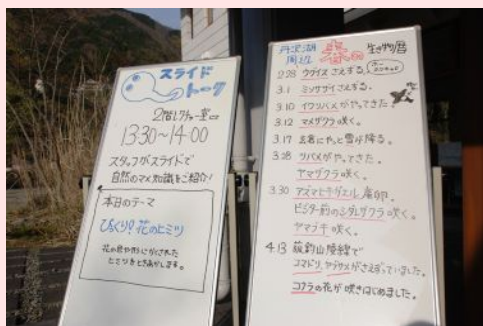 スライド
トーク
2階レクチャー室にて
13:30~14:00
スタッフがスライドで
自然のマメ知識をご紹介!
本日のテーマ
びっくり!花のヒミツ
花の色や形にかくされた
ヒミツをときあかします。
丹沢湖
周辺
春の
生き物暦
2.28 ウグイスさえずる。
ホーホケキョ
3.1 ミソサザイさえずる。
3.10 イワツバメがやってきた。
3.12 マメザクラ咲く。
3.17 玄倉にやっと雪が降る。
3.28 ツバメがやってきた。
ヤマザクラ咲く。
3.30 アズマヒキガエル産卵。
ビジター前のシダレザクラ咲く。
ヤマブキ咲く。
4.13 荻釣山陵線で
コマドリ、ヤブサメがさえずっていました。
コクラの花が咲きはじめました。